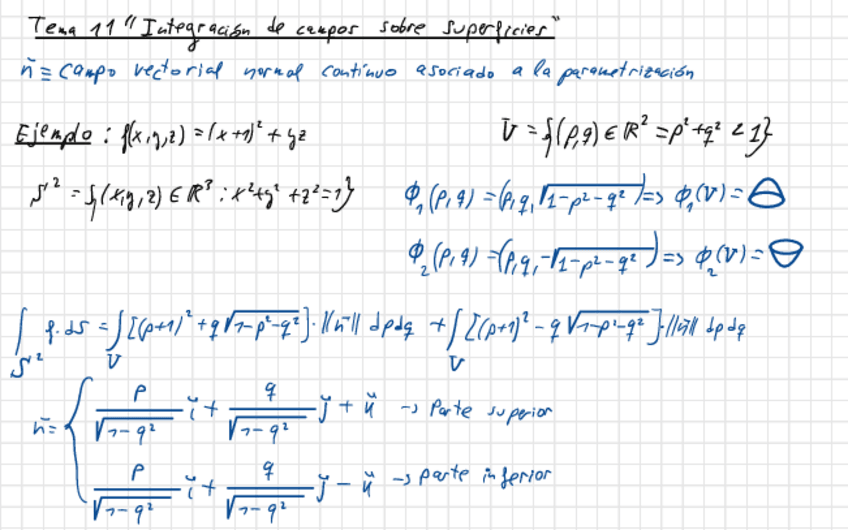 Tema 11 "Integración de campos sobre superficies"
n̄ ≡ campo vectorial normal continuo asociado a la parametrización
Ejemplo : f(x,y,z) = (x+1)² + yz
U = {(p,q) ∈ ℝ² = p² + q² < 1}
S² = {(x,y,z) ∈ ℝ³ : x² + y² + z² = 1}
ϕ₁(p,q) = (p,q,√(1-p²-q²)) => ϕ₁(U) =
ϕ₂(p,q) = (p,q,-√(1-p²-q²)) => ϕ₂(U) =
∫_S² f·dS = ∫_U [(p+1)² + q√(1-p²-q²)]·||n̄|| dpdq + ∫_U [(p+1)² - q√(1-p²-q²)]·||n̄|| dpdq
n̄ = { p/√(1-q²) ǐ + q/√(1-q²) ǰ + ǩ → Parte superior
p/√(1-q²) ǐ + q/√(1-q²) ǰ - ǩ → Parte inferior